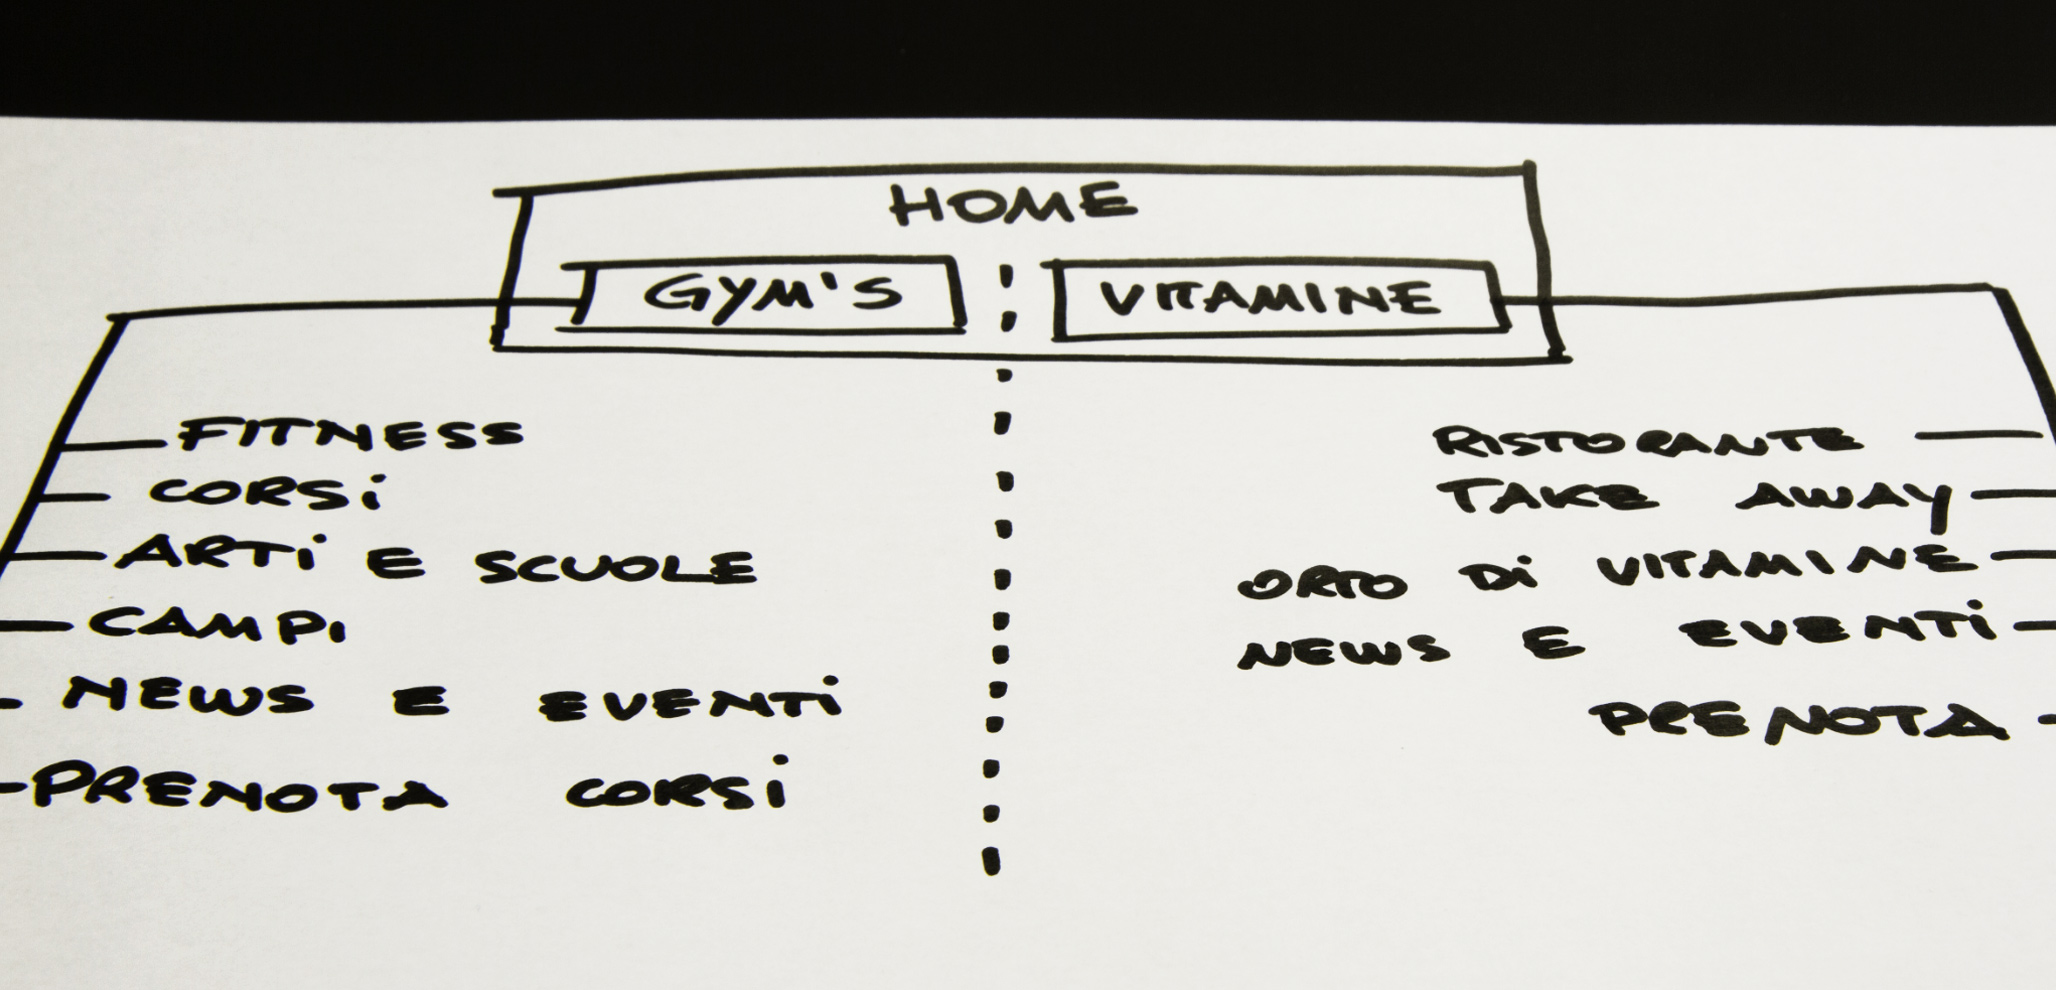 HOME
GYM'S
VITAMINE
FITNESS
CORSi
ARTi E SCUOLE
CAMPI
NEWS E EVENTi
PRENOTA CORSi
RISTORANTE
TAKE AWAY
ORTO Di VITAMINE
NEWS E EVENTi
PRENOTA